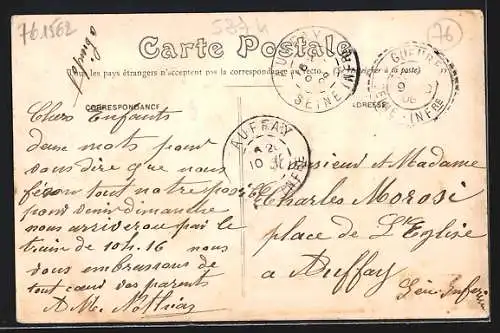 761562
76
Carte Postale
Tous les pays étrangers n'acceptent pas la correspondance au recto
à la poste)
CORRESPONDANCE
ADRESSE
AUFFAY
SEINE INFRE
AUFFAY
Chers Enfants
deux mots pour
vous dire que nous
ferons tout notre possible
pour venir dimanche
nous arriverons par le
train de 10h.16 nous
vous embrassons de
tout cœur vos parents
Monsieur et Madame
Charles Morosi
place de L'Eglise
a Auffay
Seine Inferie